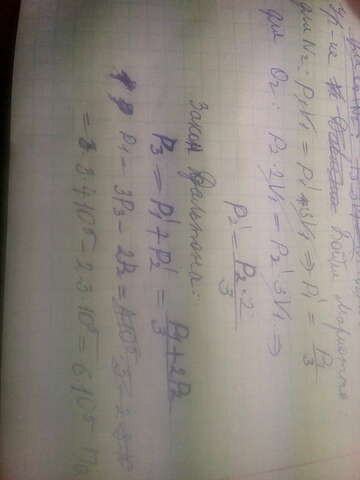 Ур-ие Бойля Мариотта:
для N₂: P₁V₁ = P₁'·3V₁ ⇒ P₁' = P₁/3
для O₂: P₂·2V₁ = P₂'·3V₁ ⇒
P₂' = P₂·2/3
Закон Дальтона:
P₃ = P₁' + P₂' = P₁+2P₂/3
P₁ = 3P₃ − 2P₂ =
= 3·4·10⁵ − 2·3·10⁵ = 6·10⁵ Па